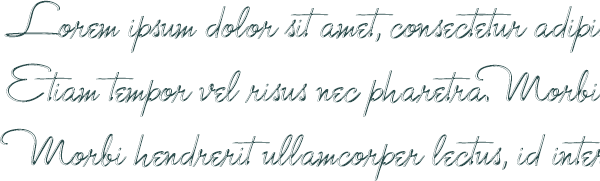 Lorem ipsum dolor sit amet, consectetur adipi
Etiam tempor vel risus nec pharetra. Morbi
Morbi hendrerit ullamcorper lectus, id inter